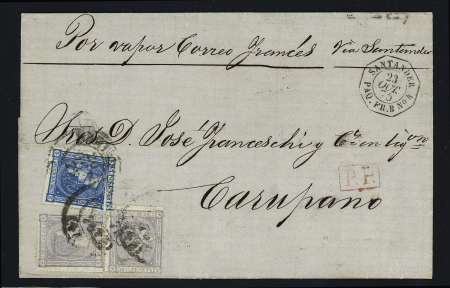 Por vapor Correo Francés Via Santander
SANTANDER
23
OCT.
75
PAQ. FR. B No 4
Sres. D. José Franceschi y Ca en liqon
P.P.
Carupano